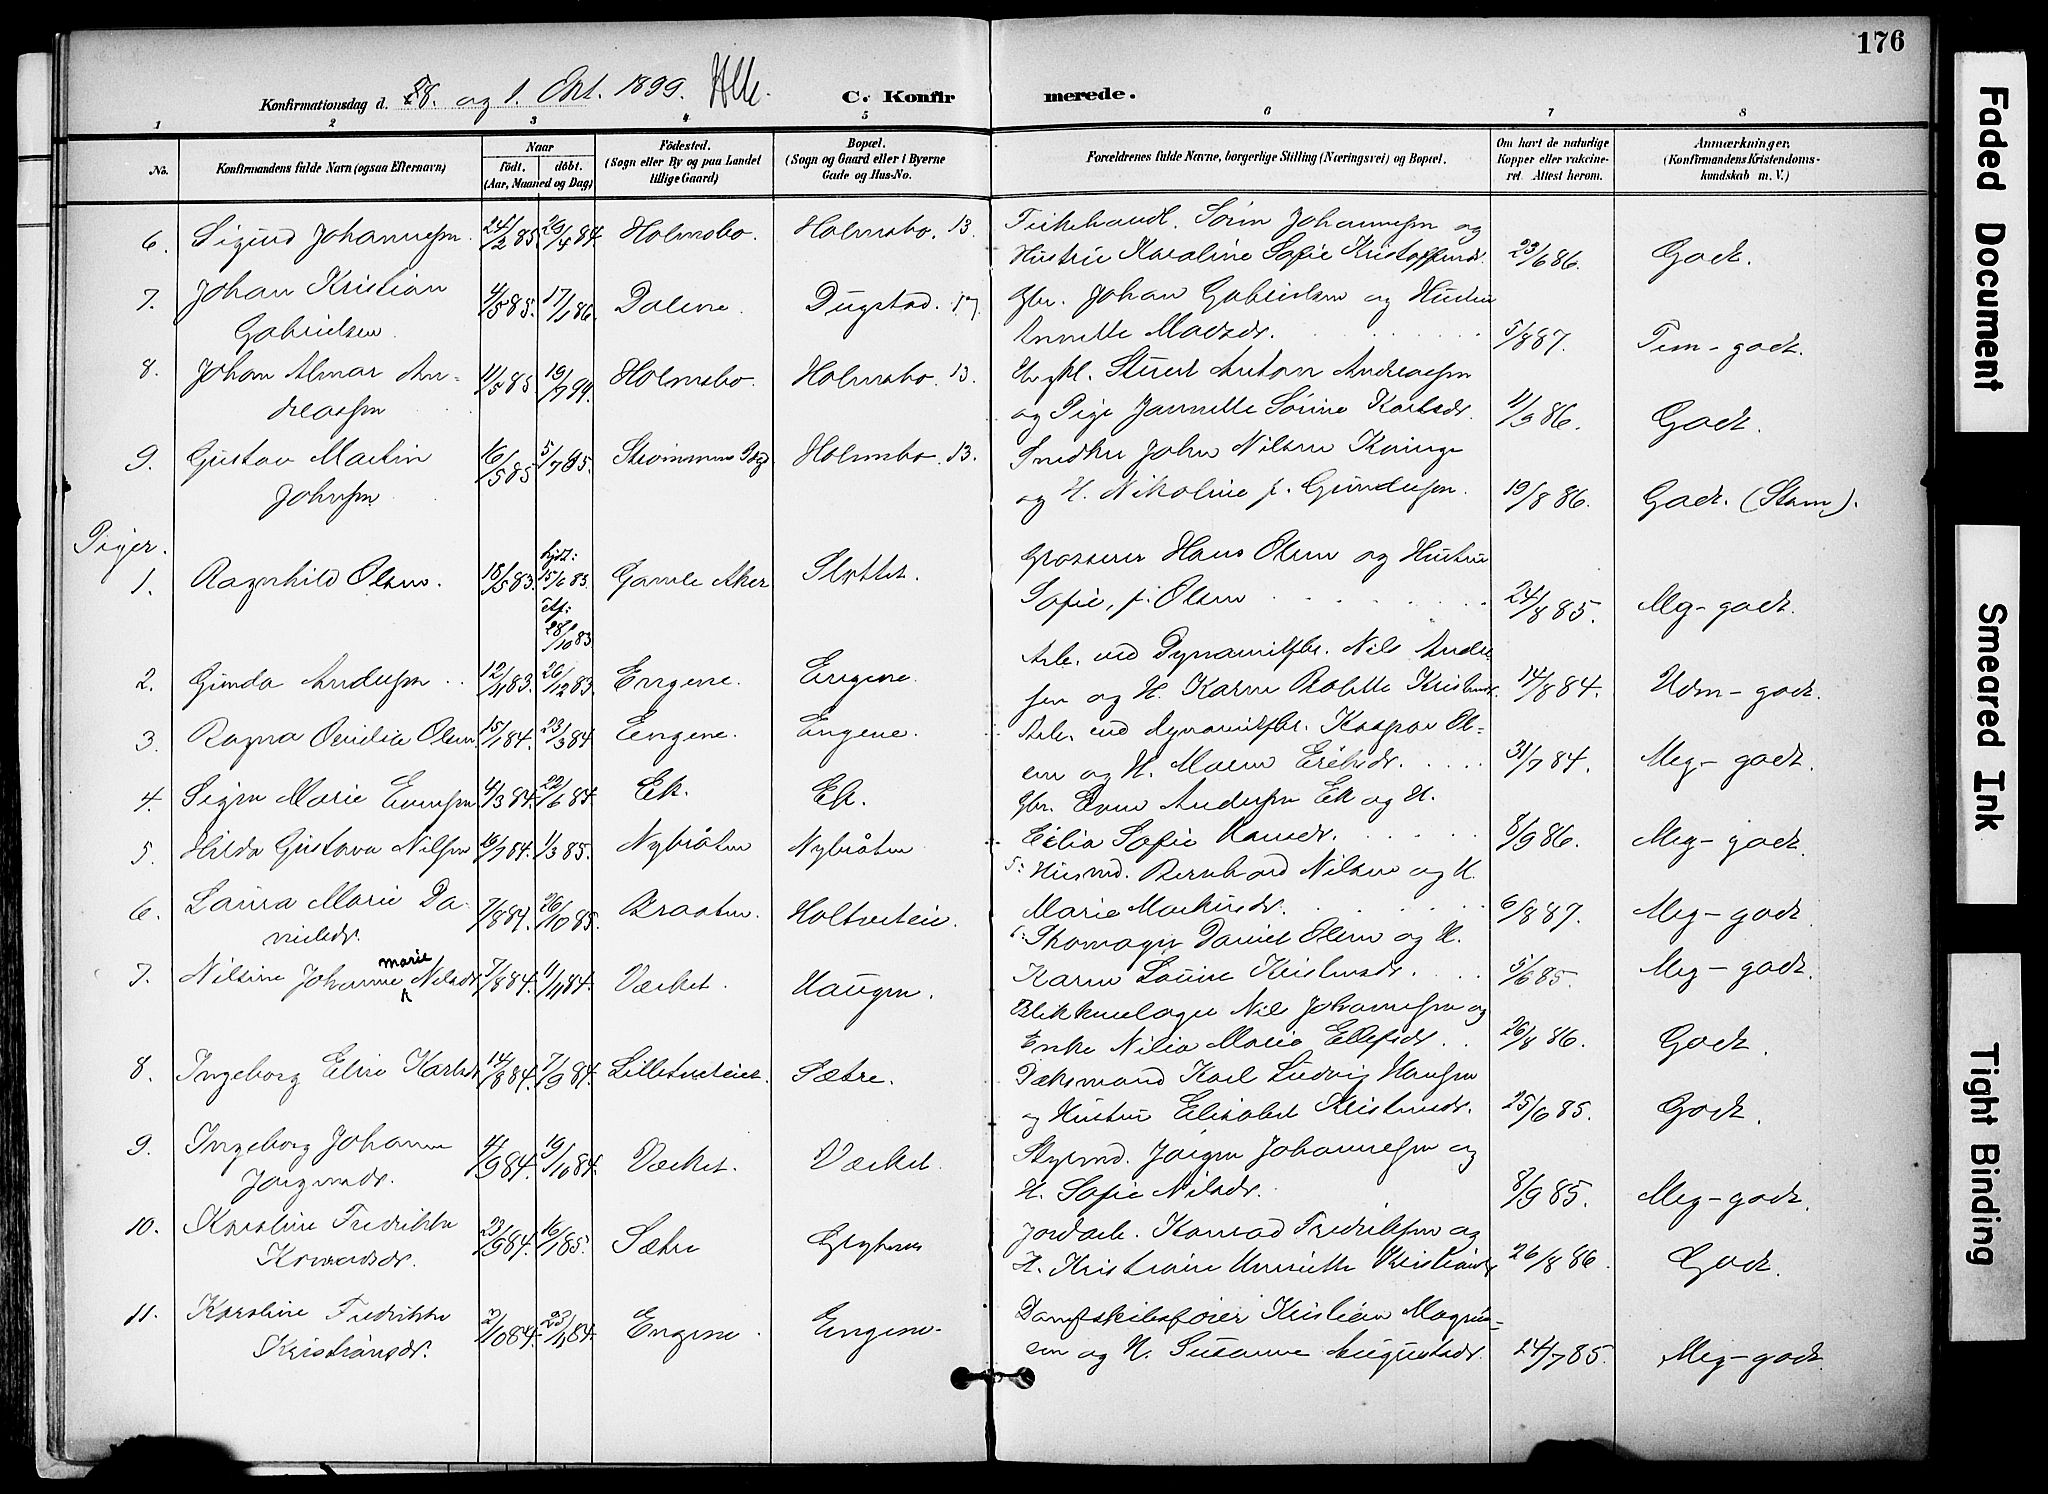 176
Konfirmationsdag d. 28. og 1. Okt. 1899.
C. Konfirmerede.
1 2 3 4 5 6 7 8
No.
Konfirmandens fulde Navn (ogsaa Efternavn)
Naar
födt. döbt.
(Aar, Maaned og Dag)
Födested.
(Sogn eller By og paa Landet
tillige Gaard)
Bopæl.
(Sogn og Gaard eller i Byerne
Gade og Hus-No.
Forældrenes fulde Navne, borgerlige Stilling (Næringsvei) og Bopæl.
Om havt de naturlige
Kopper eller vakcine-
ret. Attest herom.
Anmærkninger,
(Konfirmandens Kristendoms-
kundskab m. V.)
6. Sigurd Johannesen. 24/3 85. 20/4 84. Holmsbo. Holmsbo. 13. Fiskehandl. Sörin Johannesen og
Hustru Karoline Sofie Kristoffersdr. 23/6 86. Godt.
7. Johan Kristian 4/5 85. 17/1 86. Dalene. Dugstad. 17. Gbr. Johan Gabrielsen og Hustru
Gabrielsen. Annette Madsdr. 5/8 87. Tem-godt.
8. Johan Almar An- 11/5 85. 19/7 99. Holmsbo. Holmsbo. 13. Ungkl. Stuert Anton Andreassen
dreassen og Pige Jannette Sörine Karlsdr. 11/9 86. Godt.
9. Gustav Martin 16/5 85 5/7 85. Holmsbo. 13. Snedker John Nilsen
Johnsen. og H. Nikoline f. Gundersen. 19/8 86. Godt. (Stam).
Piger.
1. Ragnhild Olsen. 18/5 83. hjdt: 15/6 83. Gamle Aker Slottet. Grosserer Hans Olsen og Hustru
28/10 83 Sofie, f. Olsen 24/8 85. Meg-godt.
2. Gunda Andersen 12/11 83. 26/12 83. Engene. Engene. Arb. ved Dynamitfbr. Nils Ander-
sen og H. Karen Bolette Kristensdr. 14/8 84. Udm-godt.
3. Ragna Ovidia Olsen 15/1 84. 23/3 84. Engene. Engene. Arb. ved dynamitfbr. Kaspar Ol-
sen og H. Maren Eriksdr. 31/7 84. Meg-godt.
4. Signe Marie Evensen 4/3 84. 22/6 84. Ek. Ek. Gbr. Even Andersen Ek og H.
Eilia Sofie Hansdr. 8/9 86. Meg-godt.
5. Hilda Gustava Nilsen 16/7 84. 1/3 85. Nybråten Nybråten 5: Husmd. Bernhard Nilsen og H.
Marie Martinsdr. 6/8 87. Meg-godt.
6. Laura Marie Da- 7/8 84. 26/10 85. Braaten. Holtveteie. 6: Skomager Daniel Olsen og H.
nielsdr. Karen Louise Kristensdr. 5/6 85. Meg-godt.
7. Nilsine Johanne marie Nilsdr 7/8 84. 11/11 84. Værket. Haugen. Blikkenslager Nils Johannesen og
Enke Nilia Marie Ellefsdr. 26/8 86. Godt.
8. Ingeborg Elise Karlsdr. 14/8 84. 7/9 84. Lilletveteiet. Sætre. Dæksmand Karl Ludvig Hansen
og Hustru Elisabet Kristensdr. 25/6 85. Godt.
9. Ingeborg Johanne 4/9 84. 19/10 84. Værket. Værket. Styrmd. Jörgen Johannesen og
Jörgensdr. H. Sofie Nilsdr. 8/9 85. Meg-godt.
10. Karoline Fredrikke 23/9 84. 16/1 85. Sætre Jordarb. Konrad Fredriksen og
Konradsdr. H. Kristiane Henriette Kristiansdr 26/8 86. Godt.
11. Karoline Fredrikke 2/10 84. 23/11 84. Engene. Engene. Dampskibsförer Kristian Magnus-
Kristiansdr. sen og H. Susanne Augustadr. 24/7 85. Meg-godt.
Faded Document
Smeared Ink
Tight Binding